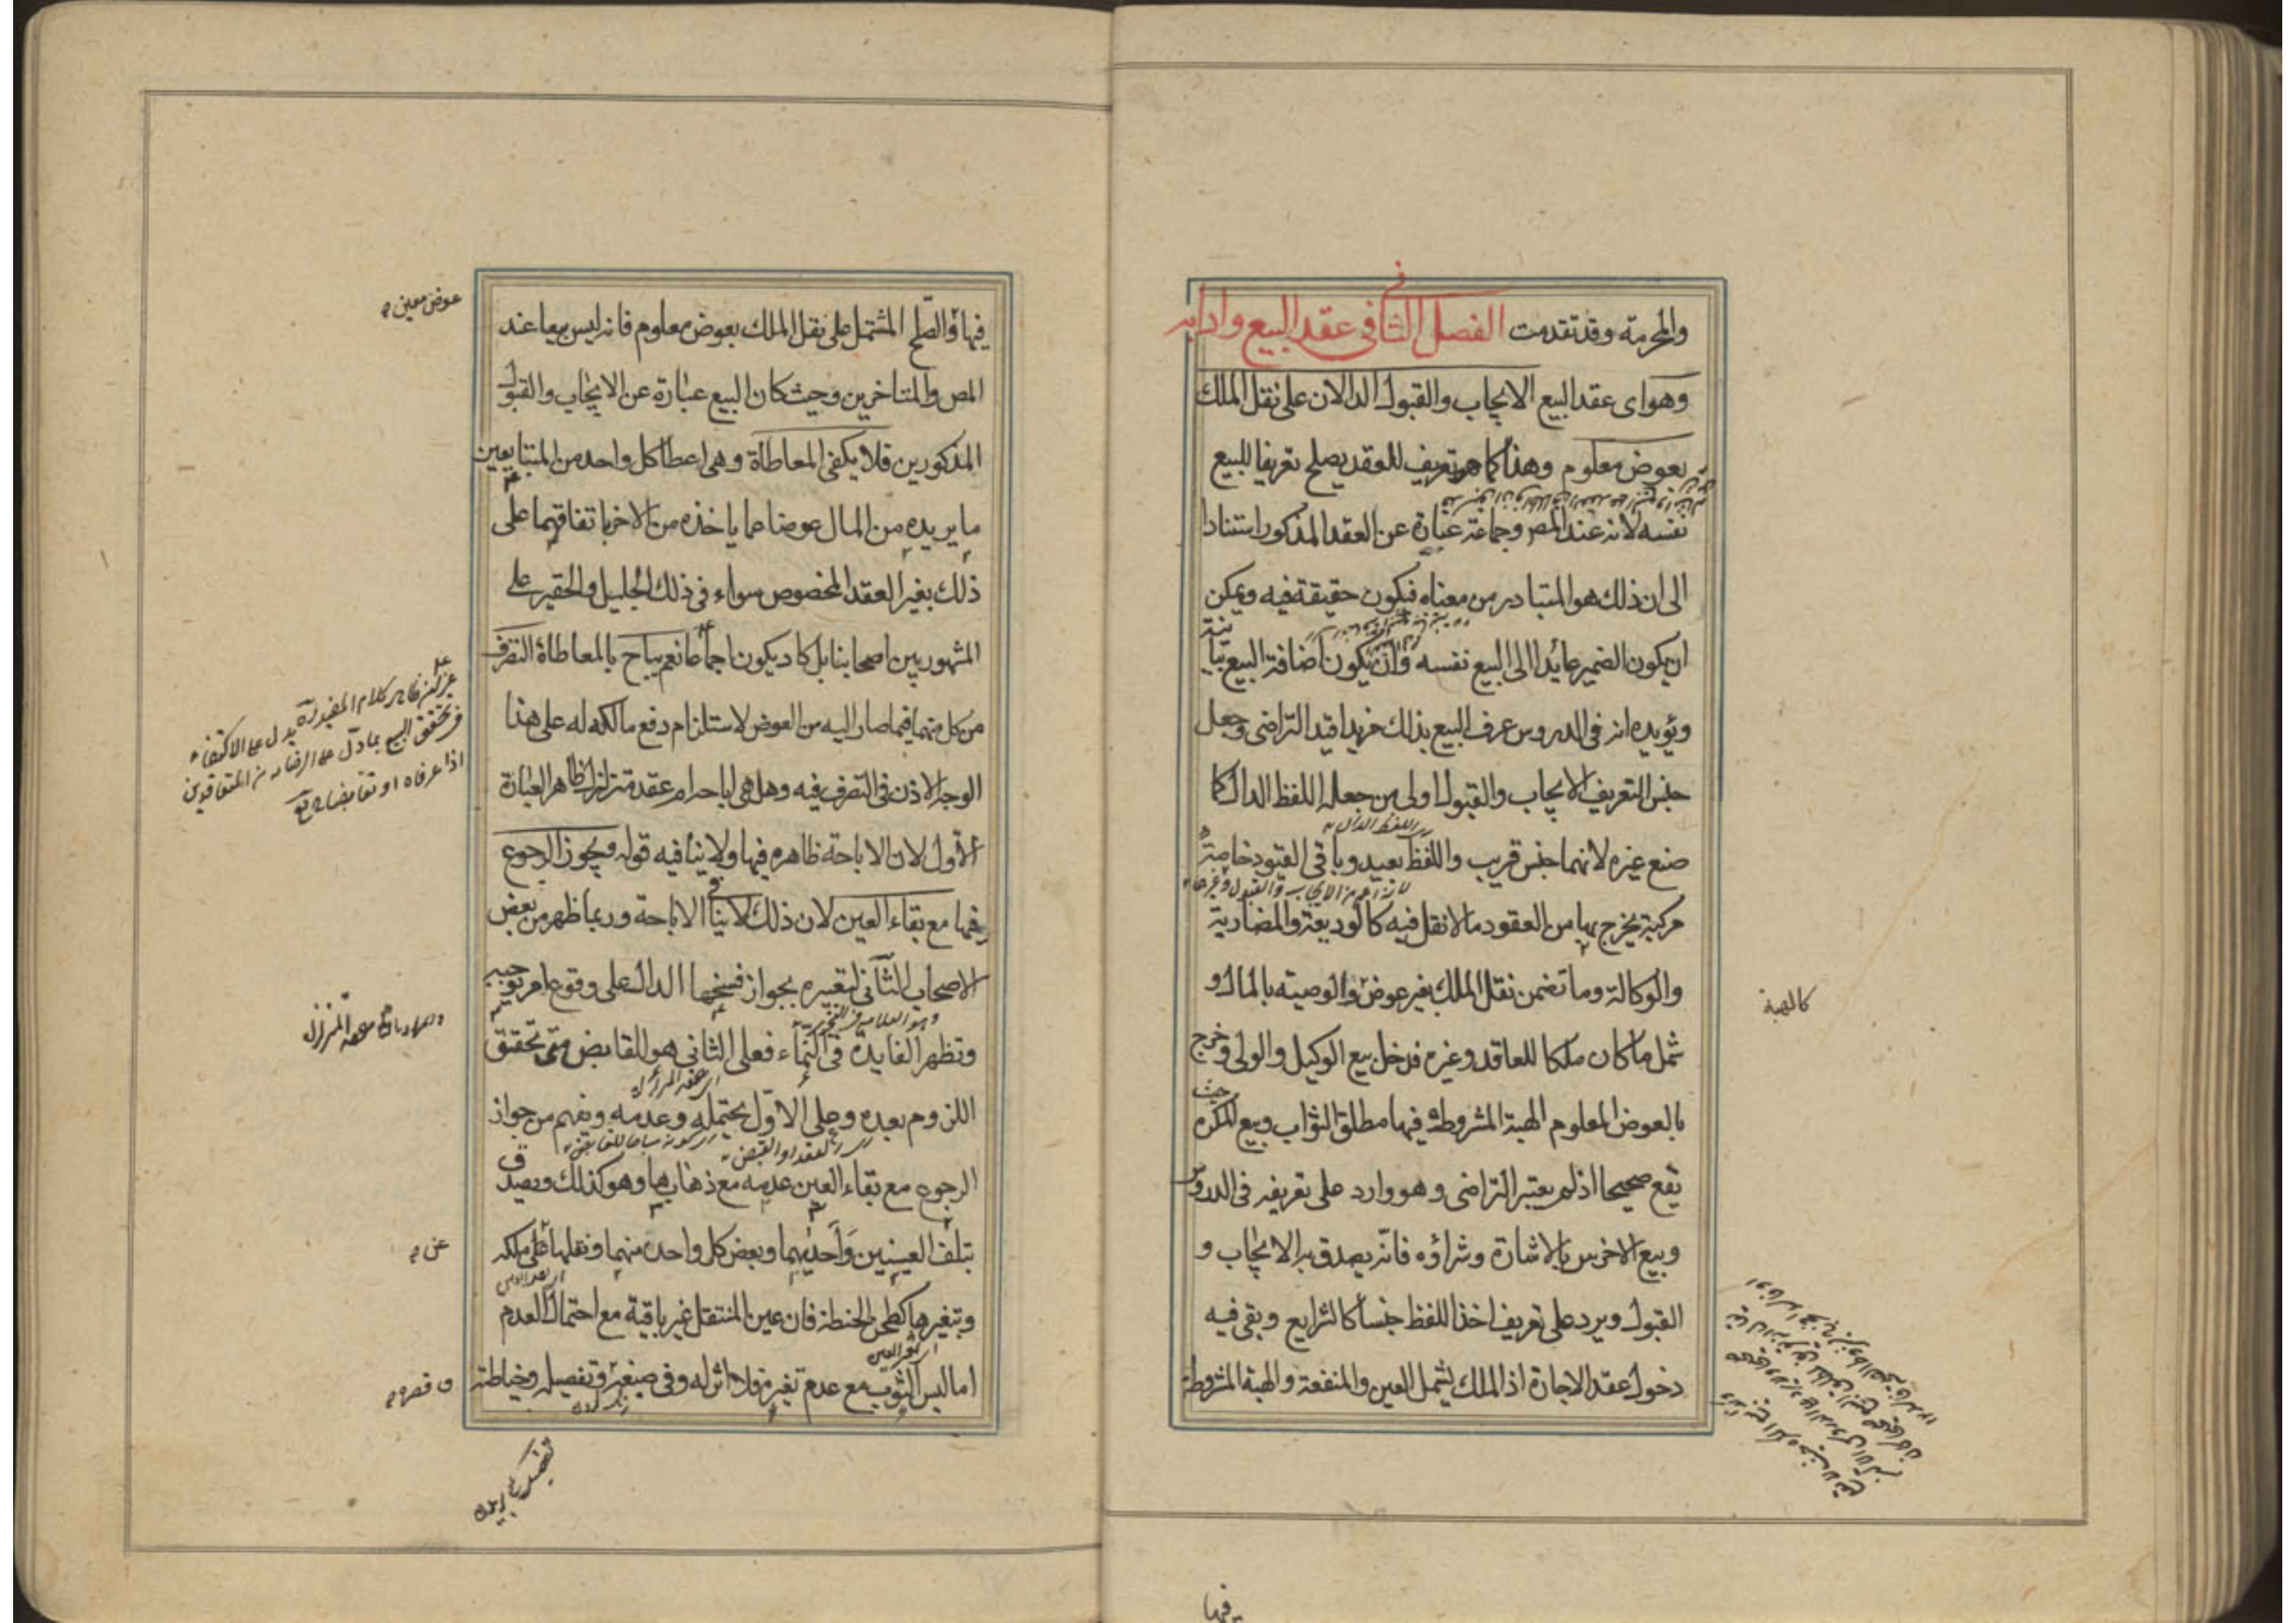 والمحرمة وقد تقدمت الفصل الثاني في عقد البيع وادابه
وهو اى عقد البيع الايجاب والقبول الدالان على نقل الملك
بعوض معلوم وهذا كما هو تعريف للعقد يصلح تعريفا للبيع
نفسه لانه عند المص وجماعة عبارة عن العقد المذكور استنادا
الى ان ذلك هو المتبادر من معناه فيكون حقيقة فيه ويمكن
ان يكون الضمير عايدا الى البيع نفسه وان يكون اضافة البيع بيانية
ويؤيده انه في الدروس عرف البيع بذلك مزيدا قيد التراضى وجعل
جنس التعريف الايجاب والقبول اولى من جعله اللفظ الدال كما
اى اللفظ الدال
صنع غيره لانهما جنس قريب واللفظ بعيد وباقى القيود خاصة
لانه اعم من الايجاب والقبول وغيرهما
مركبة يخرج بها من العقود ما لا نقل فيه كالوديعة والمضاربة
والوكالة وما تضمن نقل الملك بغير عوض والوصيه بالمال و
كالهبة
شمل ما كان ملكا للعاقد وغيره فدخل بيع الوكيل والولى وخرج
بالعوض المعلوم الهبة المشروطة فيها مطلق الثواب وبيع المكره حيث
يقع صحيحا اذ لم يعتبر التراضى وهو وارد على تعريفه فى الدروس
وبيع الاخرس بالاشارة وشراؤه فانه يصدق به الايجاب و
القبول ويرد على تعريف اخذ اللفظ جنسا كالشرايع وبقى فيه
دخول عقد الاجارة اذ الملك يشمل العين والمنفعة والهبة المشروطة
فيها
فيها والصلح المشتمل على نقل الملك بعوض معلوم فانه ليس بيعا عند
عوض معين
المص والمتاخرين وحيث كان البيع عبارة عن الايجاب والقبول
المذكورين فلا يكفى المعاطاة وهى اعطا كل واحد من المتبايعين
ما يريده من المال عوضا عما ياخذه من الاخر باتفاقهما على
ذلك بغير العقد المخصوص سواء فى ذلك الجليل والحقير على
المشهور بين اصحابنا بل كاد يكون اجماعا نعم يباح بالمعاطاة التصرف
من كل منهما فيما صار اليه من العوض لاستلزام دفع مالكه له على هذا
الوجه الاذن فى التصرف فيه وهل هى اباحة ام عقد متزلزل ظاهر العبارة
كلام المفيد ره يدل على الاكتفاء
فى تحقق البيع بما دل على الرضا به من المتعاقدين
اذا عرفاه او تقابضا
الأول لان الاباحة ظاهرة فيها ولا ينافيه قوله ويجوز الرجوع
فيها مع بقاء العين لان ذلك لا ينافى الاباحة وربما ظهر من بعض
الاصحاب الثانى لتعبيره بجواز فسخها الدال على وقوع امر يوجبه
وهو العلامه فى التحرير
وتظهر الفايدة فى النماء فعلى الثانى هو للقابض متى تحقق
اللزوم بعده وعلى الاول يحتمله وعدمه ويفهم من جواز
اى العقد او القبض
الرجوع مع بقاء العين عدمه مع ذهابها وهو كذلك ويصدق
بتلف العينين واحديهما وبعض كل واحدة منهما ونقلها عن ملكه
عن
وبتغيرها كطحن الحنطة فان عين المنتقل غير باقية مع احتمال العدم
اى تغير العين
اما لبس الثوب مع عدم تغيره فلا اثر له وفى صبغه وتفصيله وخياطته
وقصره